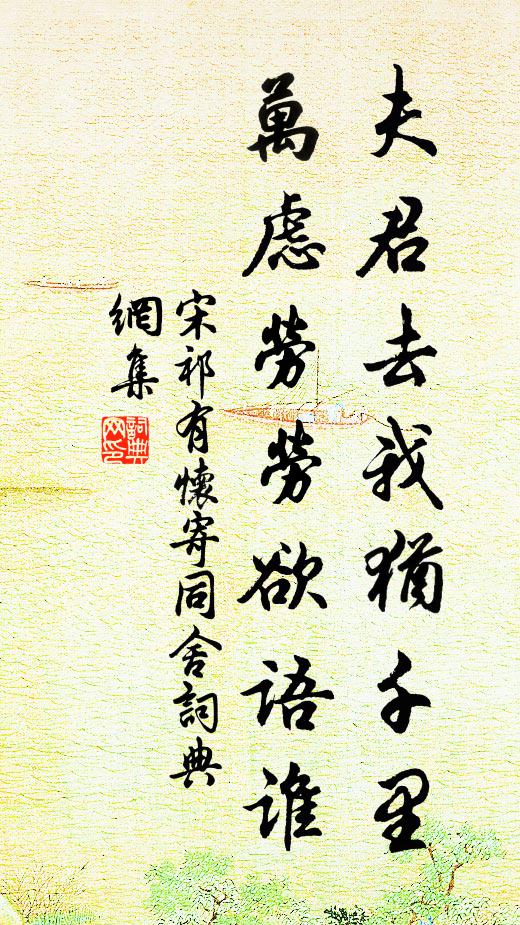 夫君去我猶千里
萬慮勞勞欲語誰
宋祁有懷寄同舍詞典
網集
詞典
网印